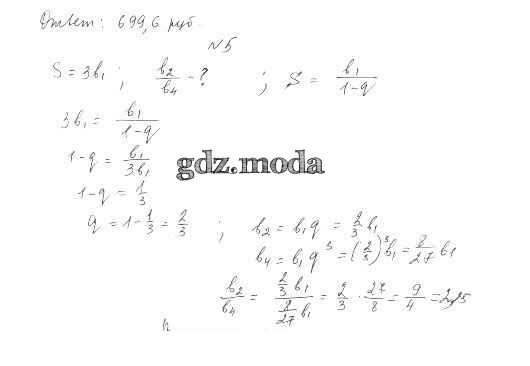 Ответ: 699,6 руб.
№5
S = 3b₁ ; b₂/b₄ - ? ; S = b₁/(1-q)
3b₁ = b₁/(1-q)
1-q = b₁/3b₁
gdz.moda
1-q = 1/3
q = 1 - 1/3 = 2/3 ; b₂ = b₁q = 2/3 b₁
b₄ = b₁q³ = (2/3)³b₁ = 8/27 b₁
b₂/b₄ = (2/3 b₁)/(8/27 b₁) = 2/3 · 27/8 = 9/4 = 2,25